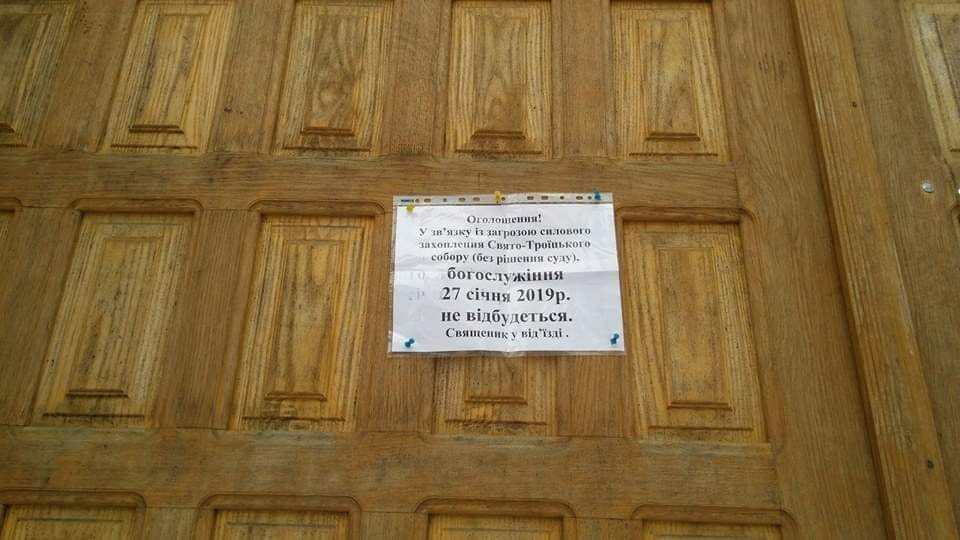 Оголошення!
У зв'язку із загрозою силового
захоплення Свято-Троїцького
собору (без рішення суду).
богослужіння
27 січня 2019р.
не відбудеться.
Священик у від'їзді .